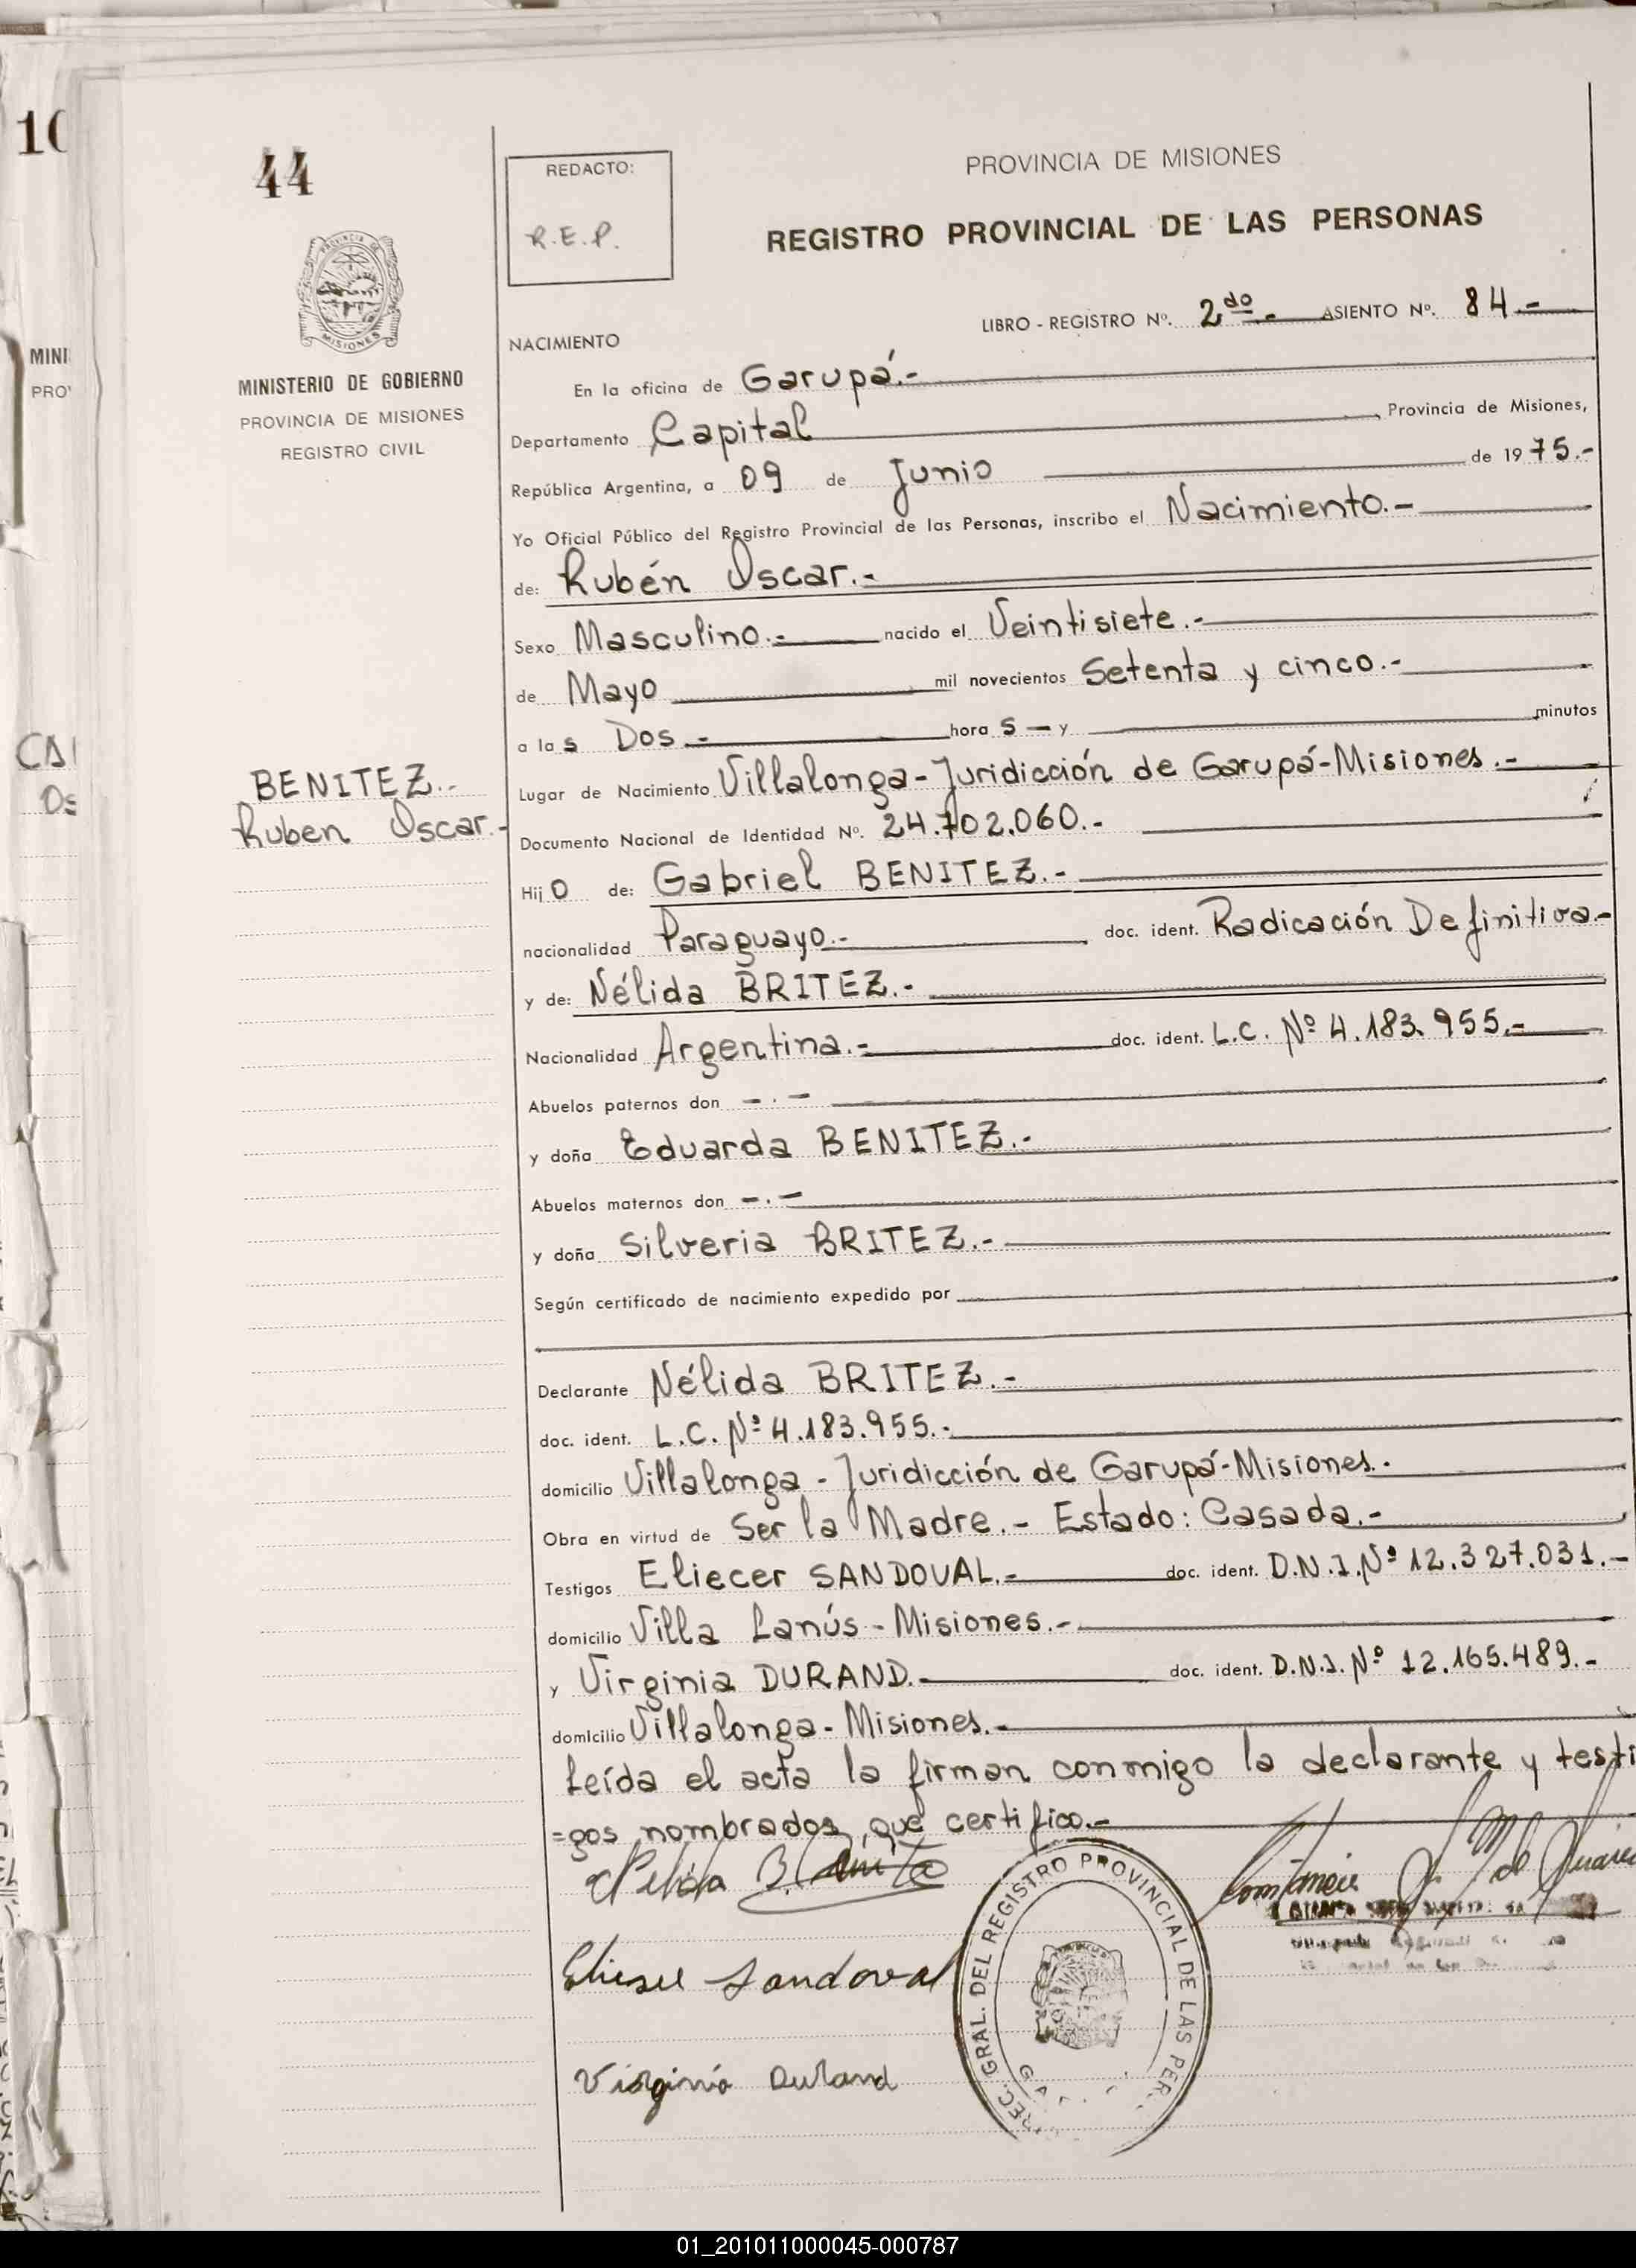 10
44
REDACTO:
R.E.P.
PROVINCIA DE MISIONES
REGISTRO PROVINCIAL DE LAS PERSONAS
LIBRO - REGISTRO Nº. 2do.- ASIENTO Nº. 84.-
PROVINCIA DE
MISIONES
MINISTERIO DE GOBIERNO
PROVINCIA DE MISIONES
REGISTRO CIVIL
MINI
PRO
NACIMIENTO
En la oficina de Garupá.-
Departamento Capital Provincia de Misiones,
República Argentina, a 09 de Junio de 1975.-
Yo Oficial Público del Registro Provincial de las Personas, inscribo el Nacimiento.-
de: Rubén Oscar.-
Sexo Masculino.- nacido el Veintisiete.-
de Mayo mil novecientos Setenta y cinco.-
a las Dos.- hora s - y minutos
BENITEZ.-
Ruben Oscar.-
Lugar de Nacimiento Villalonga-Juridicción de Garupá-Misiones.-
Documento Nacional de Identidad Nº. 24.702.060.-
Hijo de: Gabriel BENITEZ.-
nacionalidad Paraguayo.- doc. ident. Radicación Definitiva.-
y de: Nélida BRITEZ.-
Nacionalidad Argentina.- doc. ident. L.C. Nº 4.183.955.-
Abuelos paternos don -.-
y doña Eduarda BENITEZ.-
Abuelos maternos don -.-
y doña Silveria BRITEZ.-
Según certificado de nacimiento expedido por
Declarante Nélida BRITEZ.-
doc. ident. L.C. Nº 4.183.955.-
domicilio Villalonga - Juridicción de Garupá-Misiones.-
Obra en virtud de Ser la Madre.- Estado: Casada.-
Testigos Eliecer SANDOVAL.- doc. ident. D.N.I. Nº 12.327.031.-
domicilio Villa Lanús - Misiones.-
y Virginia DURAND.- doc. ident. D.N.I. Nº 12.165.489.-
domicilio Villalonga - Misiones.-
Leída el acta la firman conmigo la declarante y testi
=gos nombrados, que certifico.-
Nelida B.
Elieser Sandoval
Virginia Durand
DIREC. GRAL. DEL REGISTRO PROVINCIAL DE LAS PER.
01_201011000045-000787